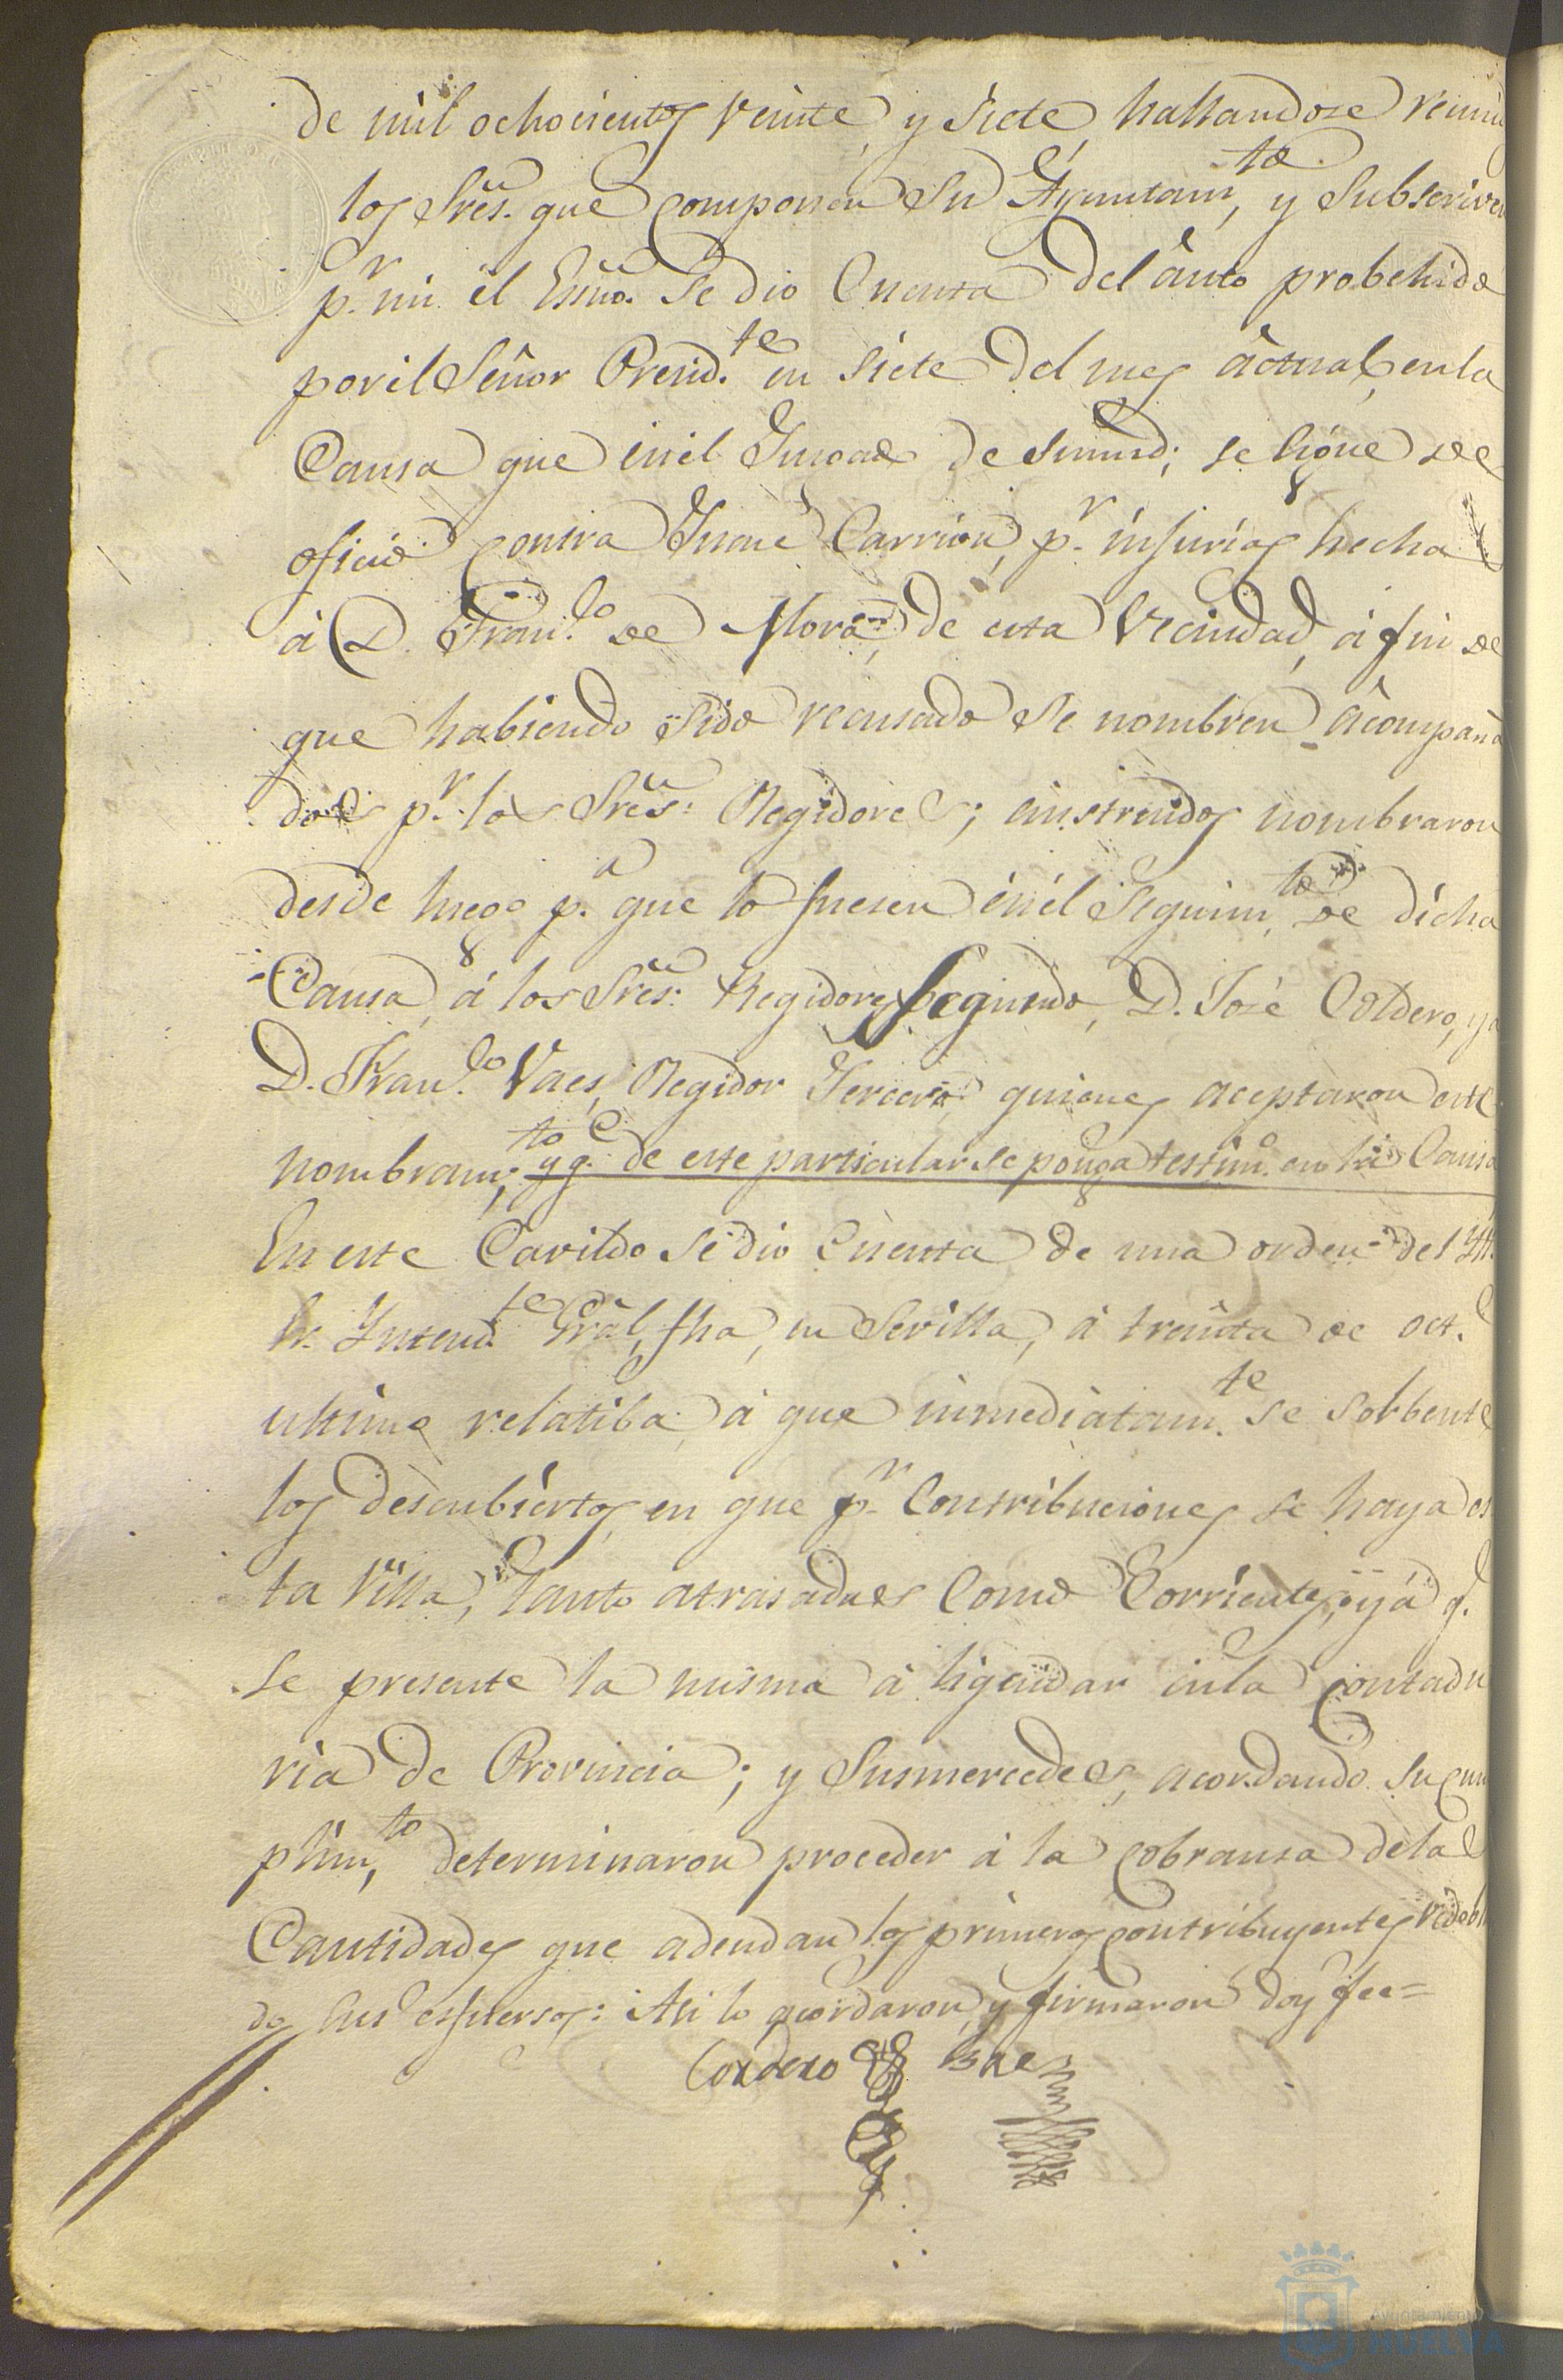 de mil ochocientos veinte, y siete, hallandose reuni
los Sres. que componen su Ayuntamto, y subscriven
pr. mi el Essno. se dio cuenta del auto probehido
por el Señor Presidte. en siete del mes actual, en la
Causa que en el Jusgado de sumrd; se sigue de
oficio contra José Carrion, pr. injurias hechas
á D. Franco. de Mora, de esta Vecindad, á fin de
que habiendo sido recusado se nombren acompaña
dos pr. los Sres. Regidores; é instruidos nombraron
desde luego pa. que lo fuesen en el seguimto. de dicha
Causa, á los Sres. Regidores segundo, D. José Cordero, y á
D. Franco. Vaes, Regidor Tercero, quienes aceptaron este
nombramto; y q. de este particular se ponga testimo. en la Causa
En este Cavildo se dio cuenta de una orden del
Sr. Intendte. Gral, fha, en Sevilla, á treinta de oct.e
ultimo relatiba, á que inmediatamte. se solbente
los descubiertos, en que pr. Contribuciones se haya es
ta Villa, tanto atrasadas como Corrientes, y á q.
se presente la misma á liquidar en la contadu
ria de Provincia; y Susmercedes, acordando su cum
plimto, determinaron proceder á la cobransa de las
Cantidades que adeudan los primeros contribuyentes
do sus esfuersos: Asi lo acordaron, y firmaron doy fee=
Cordero Baes
Ayuntamiento
HUELVA